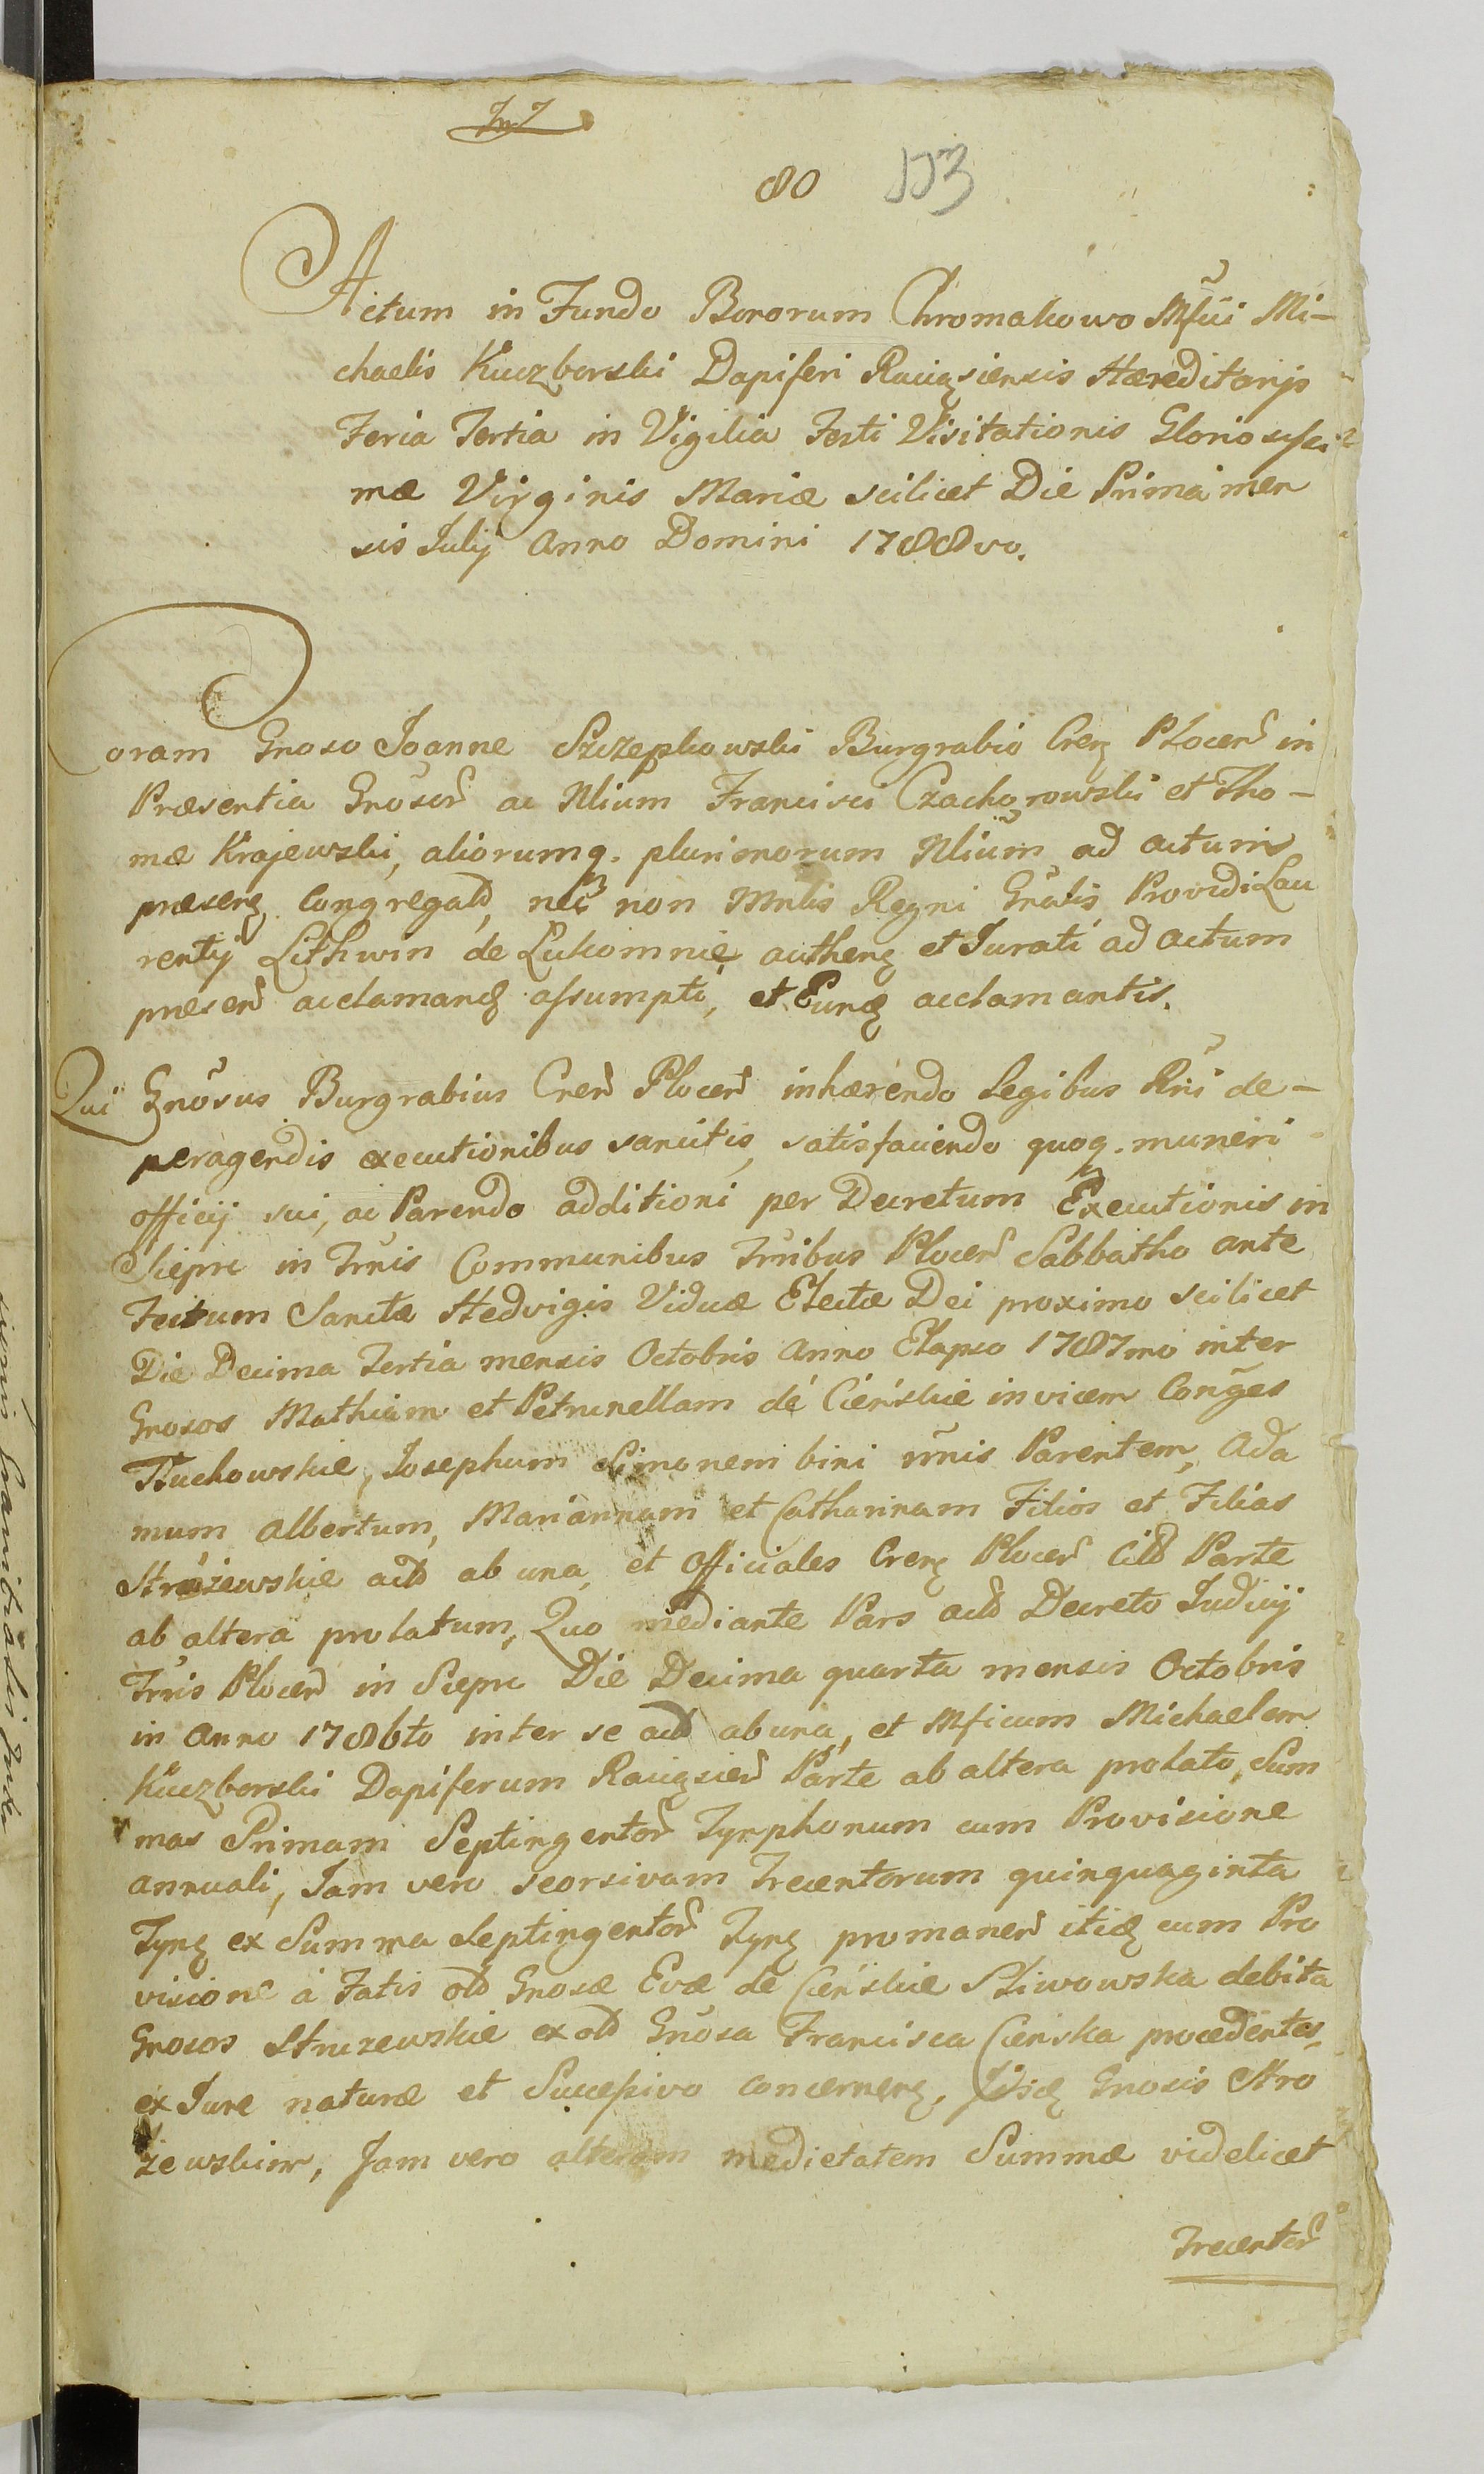 80 553
Actum in Fundo Bonorum Chromakowo Mfici Mi-
chaelis Kuczborski Dapiferi Raciązsiensis Hæreditarijs
Feria Tertia in Vigilia Festi Visitationis Gloriosissi
mæ Virginis Mariæ scilicet Die Prima men
sis Julij Anno Domini 1788vo.
Coram Gnoso Joanne Szczepkowski Burgrabio Cren Plocen in
Præsentia Gnosor ac Nlium Francisci Czachorowski et Tho-
mæ Krajewski, aliorumq. plurimorum Nlium ad actum
præsen congregator, nec non Mnlis Regni Gnalis Providi Lau
rentij Lithwin de Lukomnie, authen et Jurati ad actum
præsen acclamand assumpti, et Eund acclamantis.
Qui Gnosus Burgrabius Cren Plocen inhærendo Legibus Rni de-
peragendis executionibus sancitis, satisfaciendo quoq. muneri
officij sui, ac Parendo additioni per Decretum Executionis in
Siepre in Trnis Communibus Trribus Plocen Sabbatho ante
Festum Sanctæ Hedvigis Viduæ Electæ Dei proximo scilicet
Die Decima Tertia mensis Octobris Anno Elapso 1787mo inter
Gnosos Mathiam et Petrunellam de Cieńskie invicem Conges
Tłuchowskie, Josephum Simonem bini nnis Parentem, Ada
mum Albertum, Mariannam et Catharinam Filios et Filias
Strużewskie act ab una, et Officiales Cren Plocen Cit Parte
ab altera prolatum, Quo mediante Pars act Decreto Judicij
Trris Plocen in Siepre Die Decima quarta mensis Octobris
in Anno 1786to inter se act ab una, et Mficum Michaelem
Kuczborski Dapiferum Raciązsien Parte ab altera prolato, Sum
mas Primam Septingentor Tynphonum cum Provisione
annuali, Jam vero seorsivam Trecentorum quinquaginta
Tyn ex Summa Septingentor Tyn promanen itid cum Pro
visione a Fatis olt Gnosæ Evæ de Cieńskie Sliwowska debita
Gnosos Struzewskie ex olt Gnosa Francisca Cienska procedentes,
ex Jure naturæ et Sucessivo concernen, Iisd Gnosis Stro
żewskim, Jam vero alteram medietatem Summæ videlicet
Trecentor